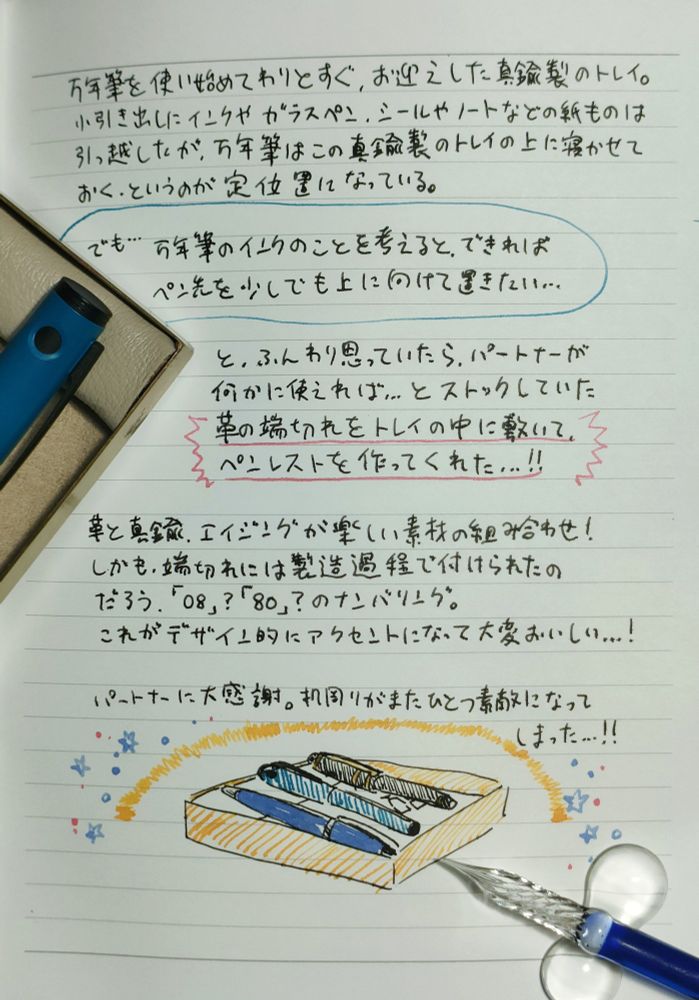 万年筆を使い始めてわりとすぐ、お迎えした真鍮製のトレイ。
小引き出しにインクや ガラスペン、シールやノートなどの紙ものは
引っ越したが、万年筆はこの真鍮製のトレイの上に寝かせて
おく、というのが定位置になっている。
でも… 万年筆のインクのことを考えると、できれば
ペン先を少しでも上に向けて置きたい…
と、ふんわり思っていたら、パートナーが
何かに使えれば…とストックしていた
革の端切れをトレイの中に敷いて、
ペンレストを作ってくれた…!!
革と真鍮、エイジングが楽しい素材の組み合わせ!
しかも、端切れには製造過程で付けられたの
だろう、「08」?「80」?のナンバリング。
これがデザイン的にアクセントになって大変おいしい…!
パートナーに大感謝。机周りがまたひとつ素敵になって
しまった…!!